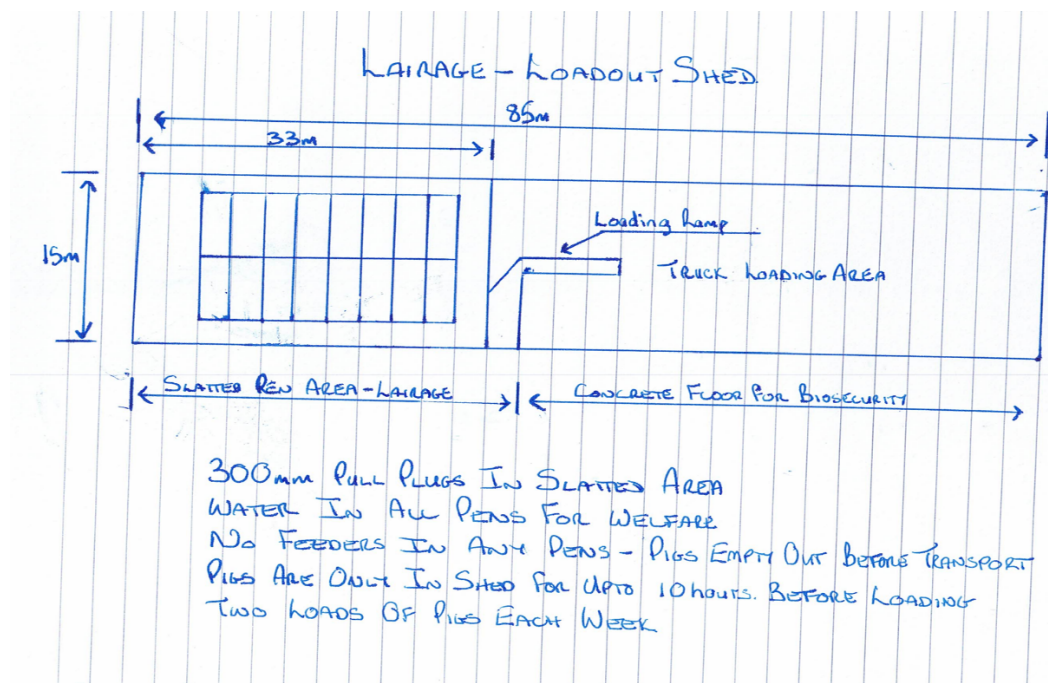 LAIRAGE - LOADOUT SHED
85m
33m
Loading Ramp
15m
TRUCK LOADING AREA
SLATTED PEN AREA - LAIRAGE
CONCRETE FLOOR FOR BIOSECURITY
300mm PULL PLUGS IN SLATTED AREA
WATER IN ALL PENS FOR WELFARE
NO FEEDERS IN ANY PENS - PIGS EMPTY OUT BEFORE TRANSPORT
PIGS ARE ONLY IN SHED FOR UPTO 10 hours. BEFORE LOADING
TWO LOADS OF PIGS EACH WEEK